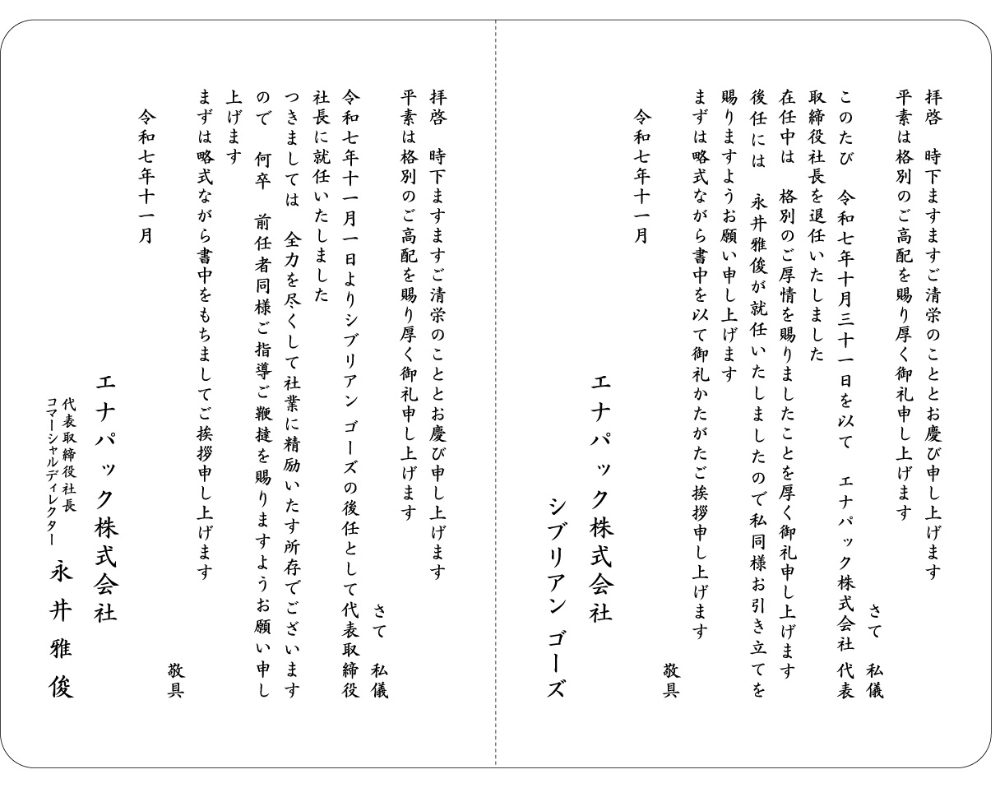 拝啓　時下ますますご清栄のこととお慶び申し上げます
平素は格別のご高配を賜り厚く御礼申し上げます
さて　私儀
このたび　令和七年十月三十一日を以て　エナパック株式会社 代表
取締役社長を退任いたしました
在任中は　格別のご厚情を賜りましたことを厚く御礼申し上げます
後任には　永井雅俊が就任いたしましたので私同様お引き立てを
賜りますようお願い申し上げます
まずは略式ながら書中を以て御礼かたがたご挨拶申し上げます
敬具
令和七年十一月
エナパック株式会社
シブリアン ゴーズ
拝啓　時下ますますご清栄のこととお慶び申し上げます
平素は格別のご高配を賜り厚く御礼申し上げます
さて　私儀
令和七年十一月一日よりシブリアン ゴーズの後任として代表取締役
社長に就任いたしました
つきましては　全力を尽くして社業に精励いたす所存でございます
ので　何卒　前任者同様ご指導ご鞭撻を賜りますようお願い申し
上げます
まずは略式ながら書中をもちましてご挨拶申し上げます
敬具
令和七年十一月
エナパック株式会社
代表取締役社長
コマーシャルディレクター
永井雅俊